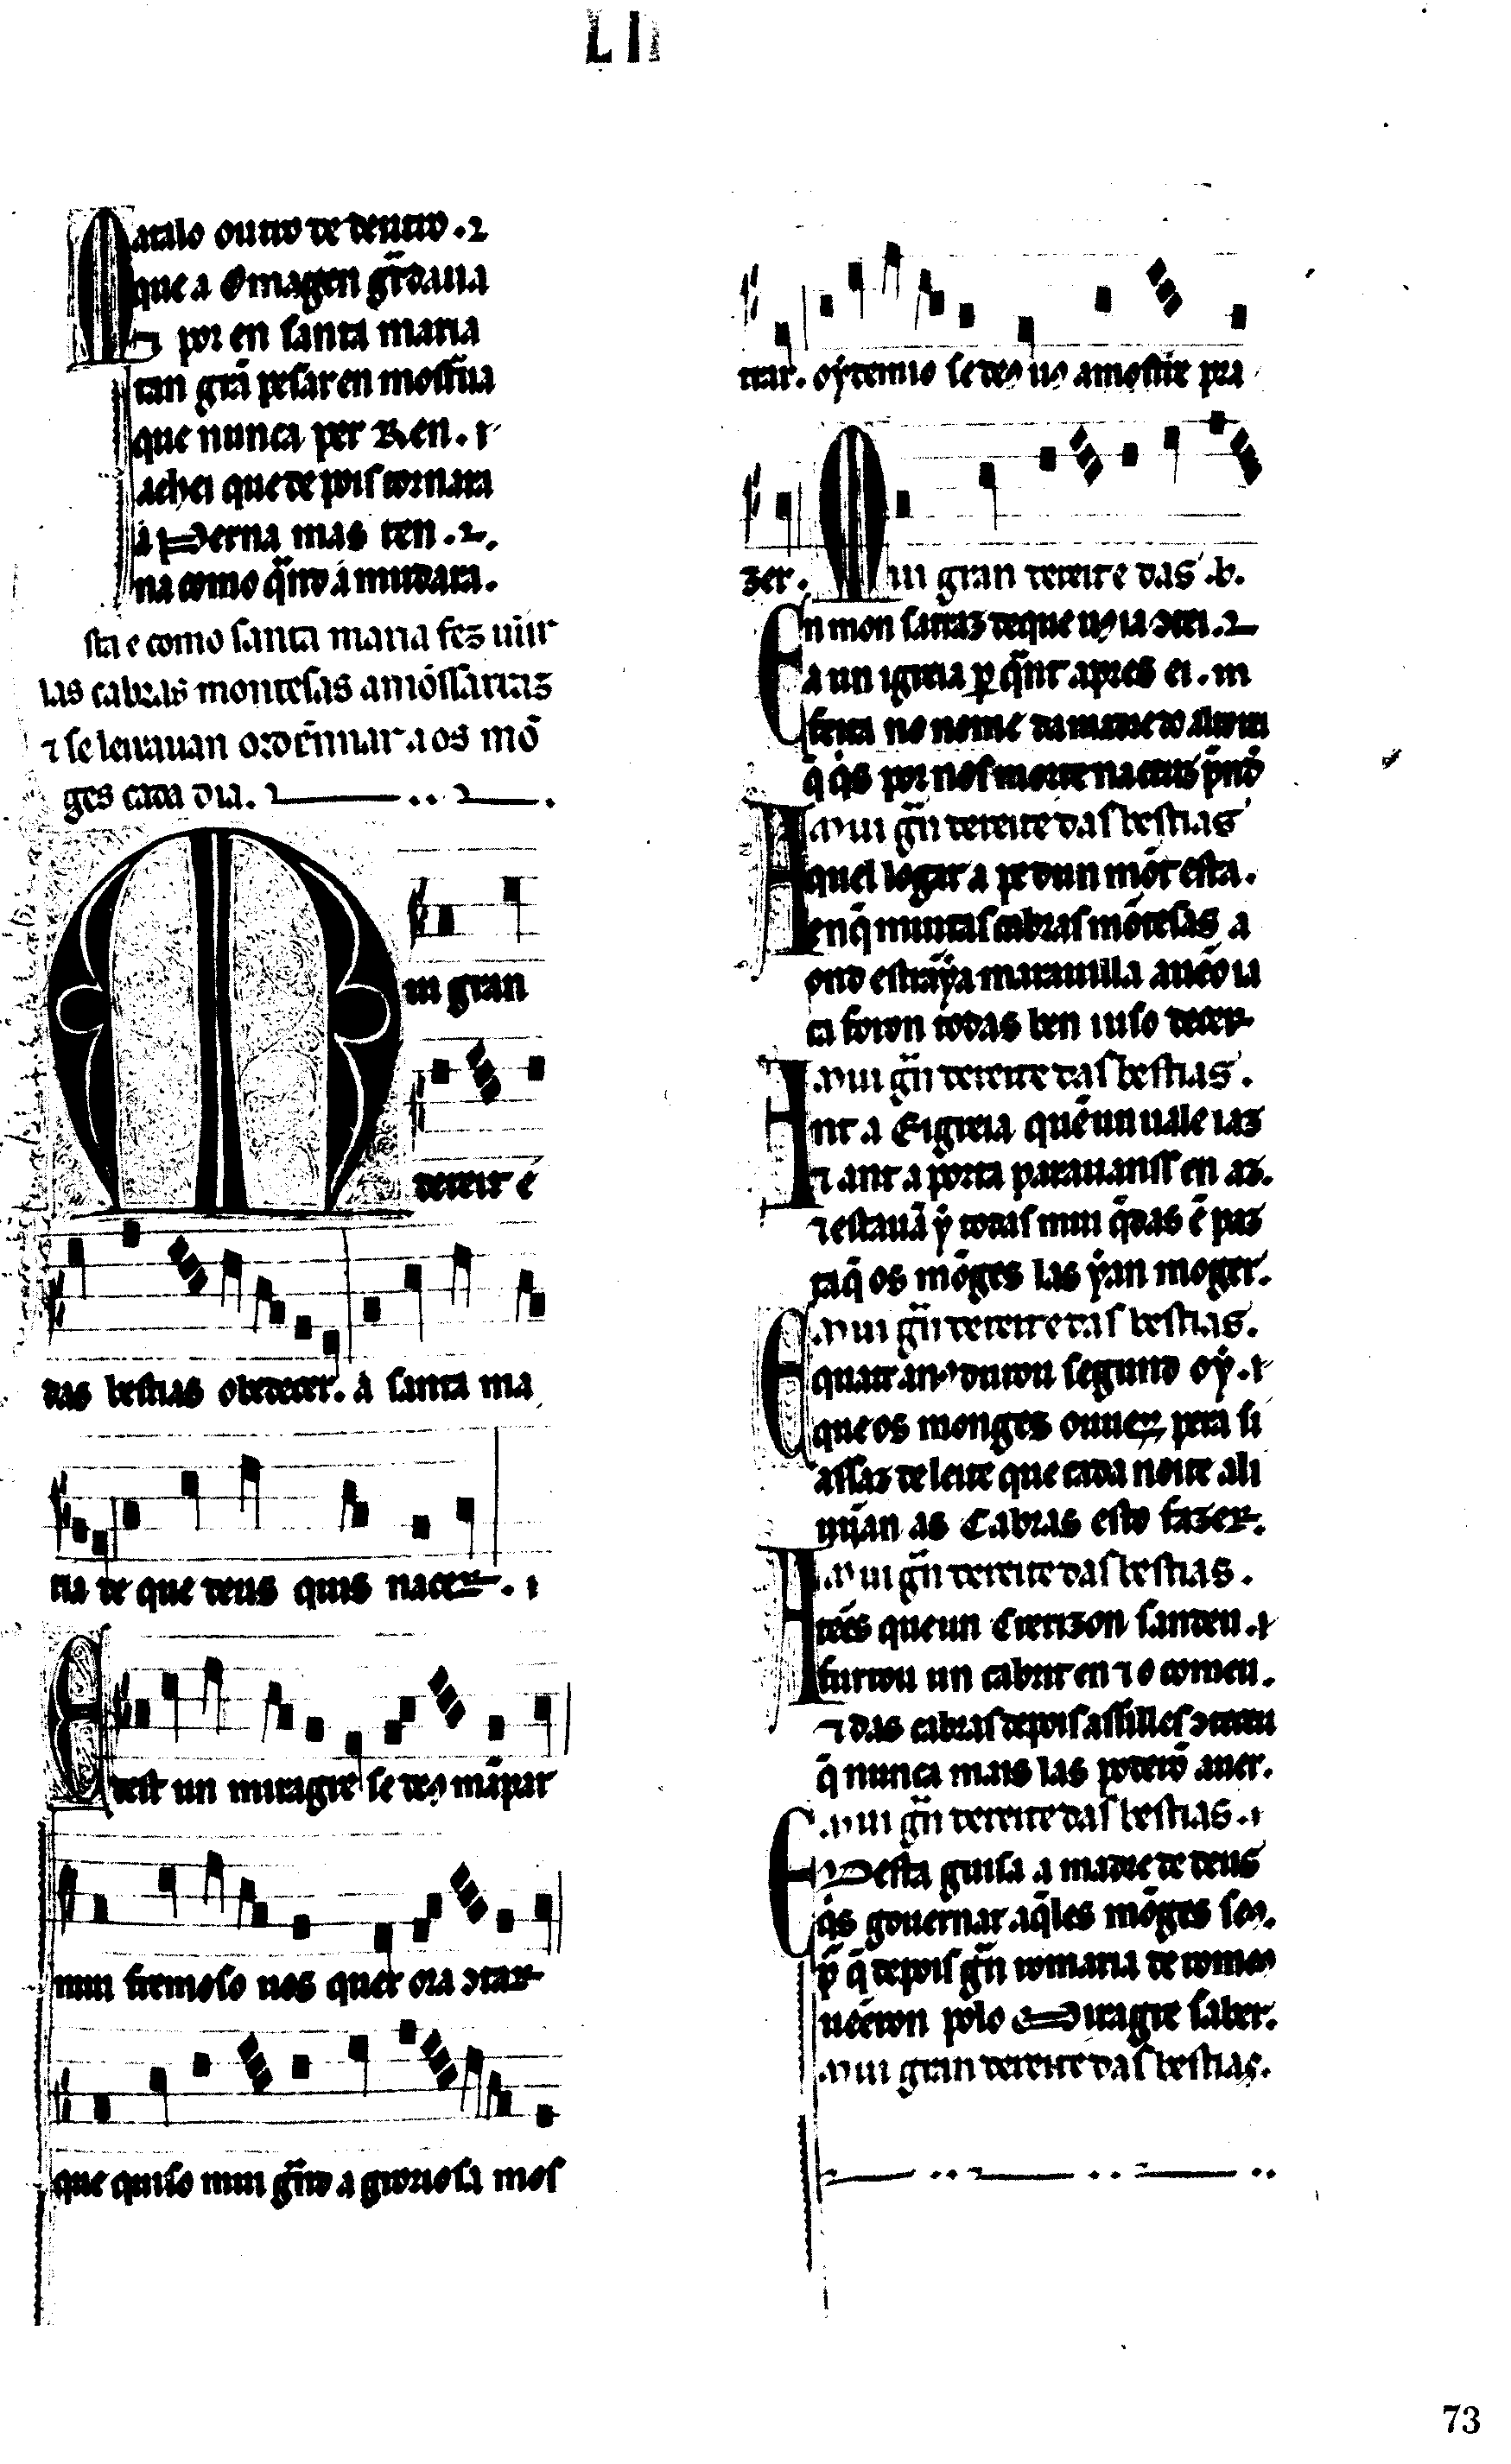 LII
Matalo outro de dentro.
que a Omagen gr̃daua
⁊ por en santa maria
tan grã pesar en mostr̃ua
que nunca per Ren.
achei que depois tornara
a Perna mas ten.
na como q̃ndo a mudara.
sta e como santa maria fez uĩir
las cabras montesas a mõssarraz
⁊ se leixauan ordẽnnar aos mõ
ges cada dia.
Mui gran
dereit é
das bestias obedecer. a santa ma
ria de que deus quis nacer.
E dest un miragre se ds̃ mãpar
mui fremoso uos quer ora ɔtar
que quiso mui g̃nd a groriosa mos
trar. oydemio se ds̃ uos amostre pra
zer. Mui gran dereit e das .b.
En mon sarraz de que uos ia ɔtei.
a un igreia ꝑ q̃nt apres ei. m
feita no nome da madre do alto rei
q̃ q̃s por nos morte na cruz p̃nd
Mui gñ dereit e das bestias
Aquel logar a pe dun mõt esta.
en q̃ muitas cabras mõtesas a
ond estraỹa marauilla auẽo ia
ca foron todas ben iuso decer
Mui gñ dereit e das bestias.
Ant a Eigreia que ẽ un uale iaz
⁊ ant a porta parauanss en az.
⁊ estauã ẏ todas mui q̃das ẽ paz
ta q̃ os mõges las yan moger.
Mui gñ dereit e das bestias.
E quatr anos durou segund oý.
que os monges ouueron pera si
assaz de leite que cada noite ali
uĩian as Cabras esto fazer.
Mui gñ dereit e das bestias.
A teẽs que un Crerizon sandeu.
furtou un cabrit en ⁊ o comeu.
⁊ das cabras depois assi lles ɔteceu
q̃ nunca mais las poderõ auer.
Mui gñ dereit e das bestias.
E Desta guisa a madre de deus
q̃s gouernar aq̃les mõges seos.
p̃ q̃ depois gñ romaria de romeos
uẽeron polo Miragre saber.
Mui gran dereit e das bestias.
73